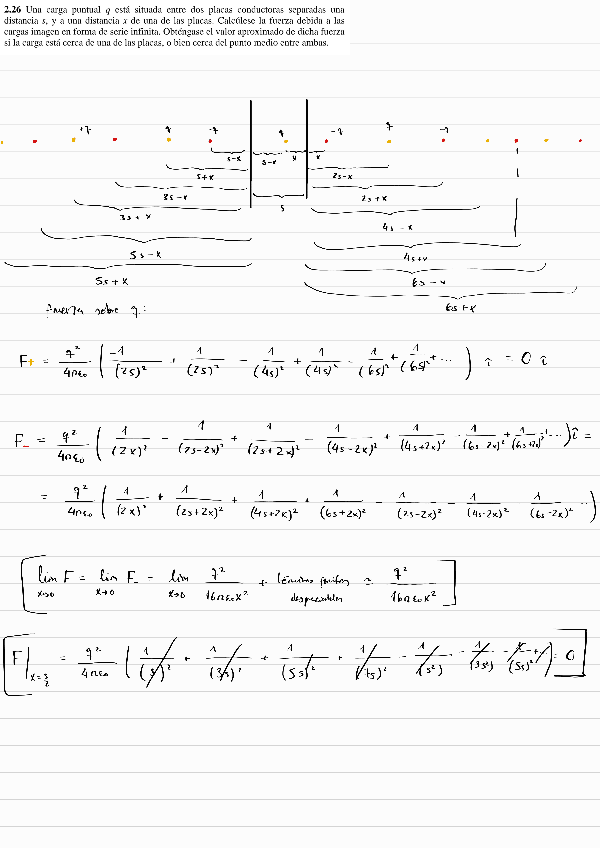 2.26 Una carga puntual q está situada entre dos placas conductoras separadas una
distancia s, y a una distancia x de una de las placas. Calcúlese la fuerza debida a las
cargas imagen en forma de serie infinita. Obténgase el valor aproximado de dicha fuerza
si la carga está cerca de una de las placas, o bien cerca del punto medio entre ambas.
+q q -q q -q q -q
s-x s-x x x
s+x 2s-x
3s-x s 2s+x
3s+x 4s-x
5s-x 4s+x
5s+x 6s-x
6s+x
Fuerza sobre q:
F+ = q²/4πε₀ ( -1/(2s)² + 1/(2s)² - 1/(4s)² + 1/(4s)² - 1/(6s)² + 1/(6s)² + ... ) î = 0 î
F- = q²/4πε₀ ( 1/(2x)² - 1/(2s-2x)² + 1/(2s+2x)² - 1/(4s-2x)² + 1/(4s+2x)² - 1/(6s-2x)² + 1/(6s+2x)² ... ) î =
= q²/4πε₀ ( 1/(2x)² + 1/(2s+2x)² + 1/(4s+2x)² + 1/(6s+2x)² - 1/(2s-2x)² - 1/(4s-2x)² - 1/(6s-2x)² ... )
lim x→0 F = lim x→0 F- = lim x→0 q²/16πε₀x² + términos finitos despreciables = q²/16πε₀x²
F|x=s/2 = q²/4πε₀ ( 1/(s)² + 1/(3s)² + 1/(5s)² + 1/(7s)² - 1/(s²) - 1/(3s²) - 1/(5s)² + ... ) = 0